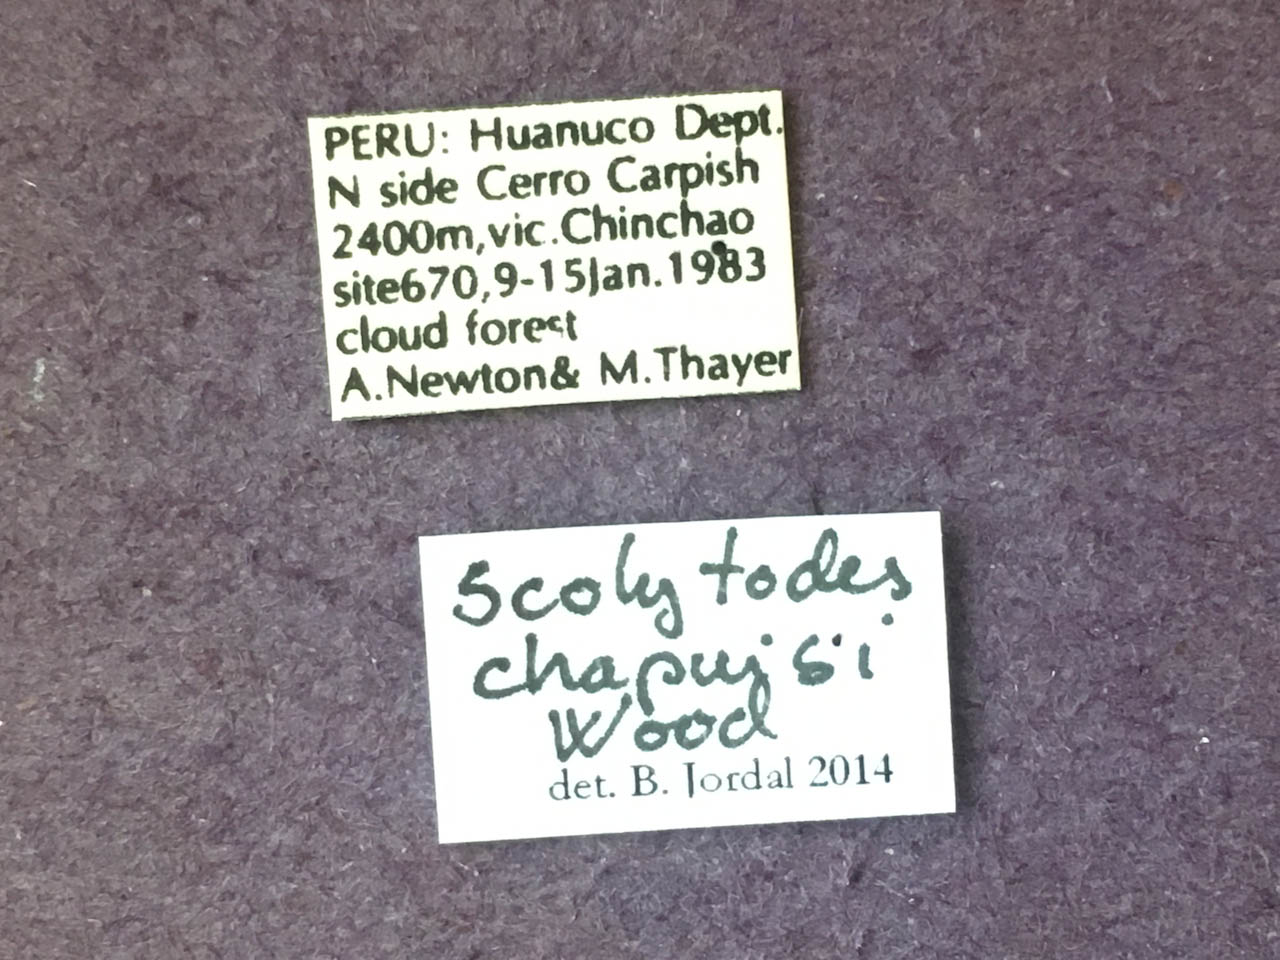 PERU: Huanuco Dept.
N side Cerro Carpish
2400m,vic.Chinchao
site670,9-15Jan.1983
cloud forest
A.Newton& M.Thayer
Scolytodes
chapuisi
Wood
det. B. Jordal 2014